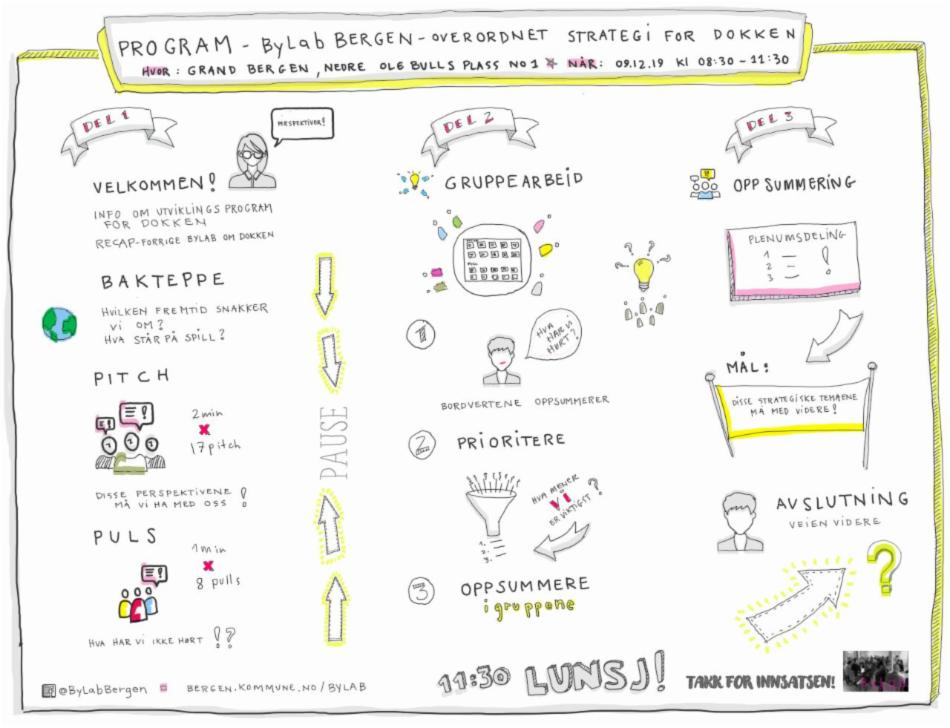 PROGRAM - ByLab BERGEN - OVERORDNET STRATEGI FOR DOKKEN
HVOR: GRAND BERGEN, NEDRE OLE BULLS PLASS NO 1 NÅR: 09.12.19 Kl 08:30 - 11:30
DEL 1
PERSPEKTIVER!
VELKOMMEN!
INFO OM UTVIKLINGS PROGRAM
FOR DOKKEN
RECAP-FORRIGE BYLAB OM DOKKEN
BAKTEPPE
HVILKEN FREMTID SNAKKER
VI OM?
HVA STÅR PÅ SPILL?
PITCH
2 min
x
17 pitch
DISSE PERSPEKTIVENE
MÅ VI HA MED OSS !
PULS
1 min
x
8 pulls
HVA HAR VI IKKE HØRT !?
PAUSE
@ByLabBergen
BERGEN.KOMMUNE.NO/BYLAB
DEL 2
GRUPPEARBEID
1
HVA
HAR VI
HØRT?
BORDVERTENE OPPSUMMERER
2 PRIORITERE
HVA MENER
VI
ER VIKTIGST ?
1.
2.
3.
3 OPPSUMMERE
i gruppene
11:30 LUNSJ!
DEL 3
OPPSUMMERING
PLENUMSDELING
1
2
3
!
MÅL:
DISSE STRATEGISKE TEMAENE
MÅ MED VIDERE!
AVSLUTNING
VEIEN VIDERE
?
TAKK FOR INNSATSEN!